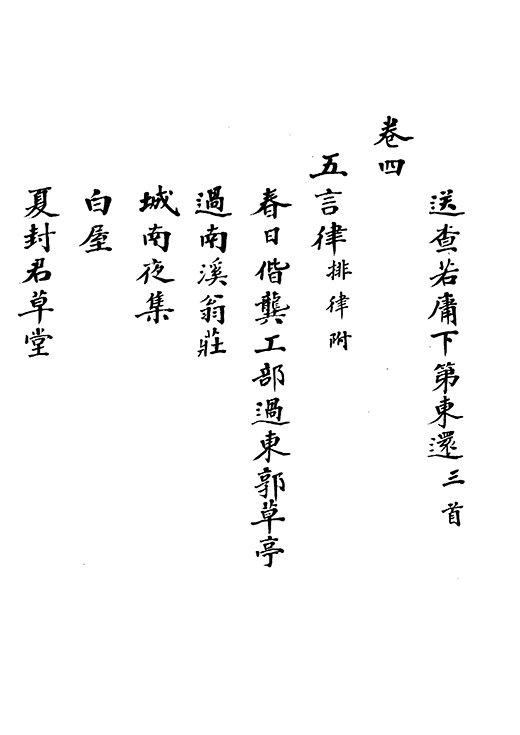 送查若庸下第東還三首
卷四
五言律排律附
春日偕龔工部過東郭草亭
過南溪翁莊
城南夜集
白屋
夏封君草堂